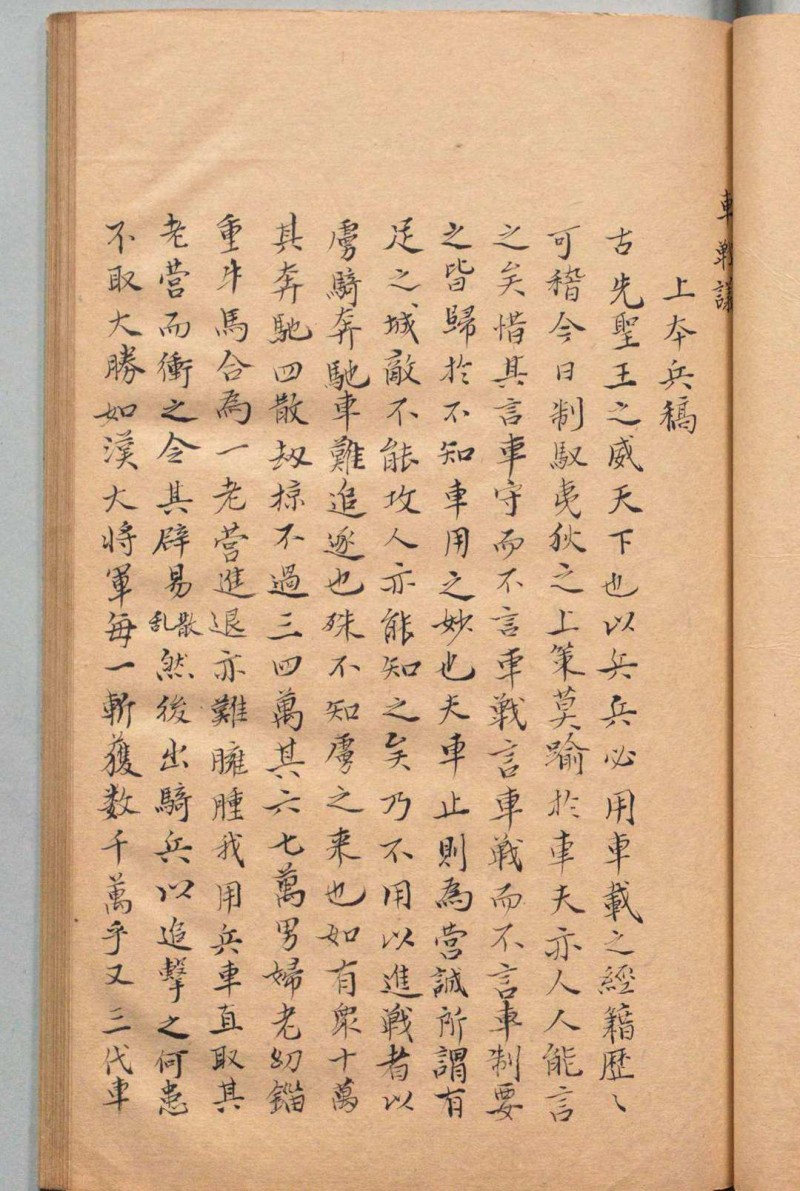 車戰議
上本兵稿
古先聖王之威天下也以兵兵必用車載之經籍歴〻
可稽今日制馭夷狄之上策莫踰於車夫亦人人能言
之矣惜其言車守而不言車戰言車戰而不言車制要
之皆歸於不知車用之妙也夫車止則為營誠所謂有
足之城敵不能攻人亦能知之矣乃不用以進戰者以
虜騎奔馳車難追逐也殊不知虜之来也如有衆十萬
其奔馳四散劫掠不過三四萬其六七萬男婦老幼錙
重牛馬合為一老營進退亦難臃腫我用兵車直取其
老營而衝之令其辟易散乱然後出騎兵以追擊之何患
不取大勝如漢大将軍每一斬獲数千萬乎又三代車